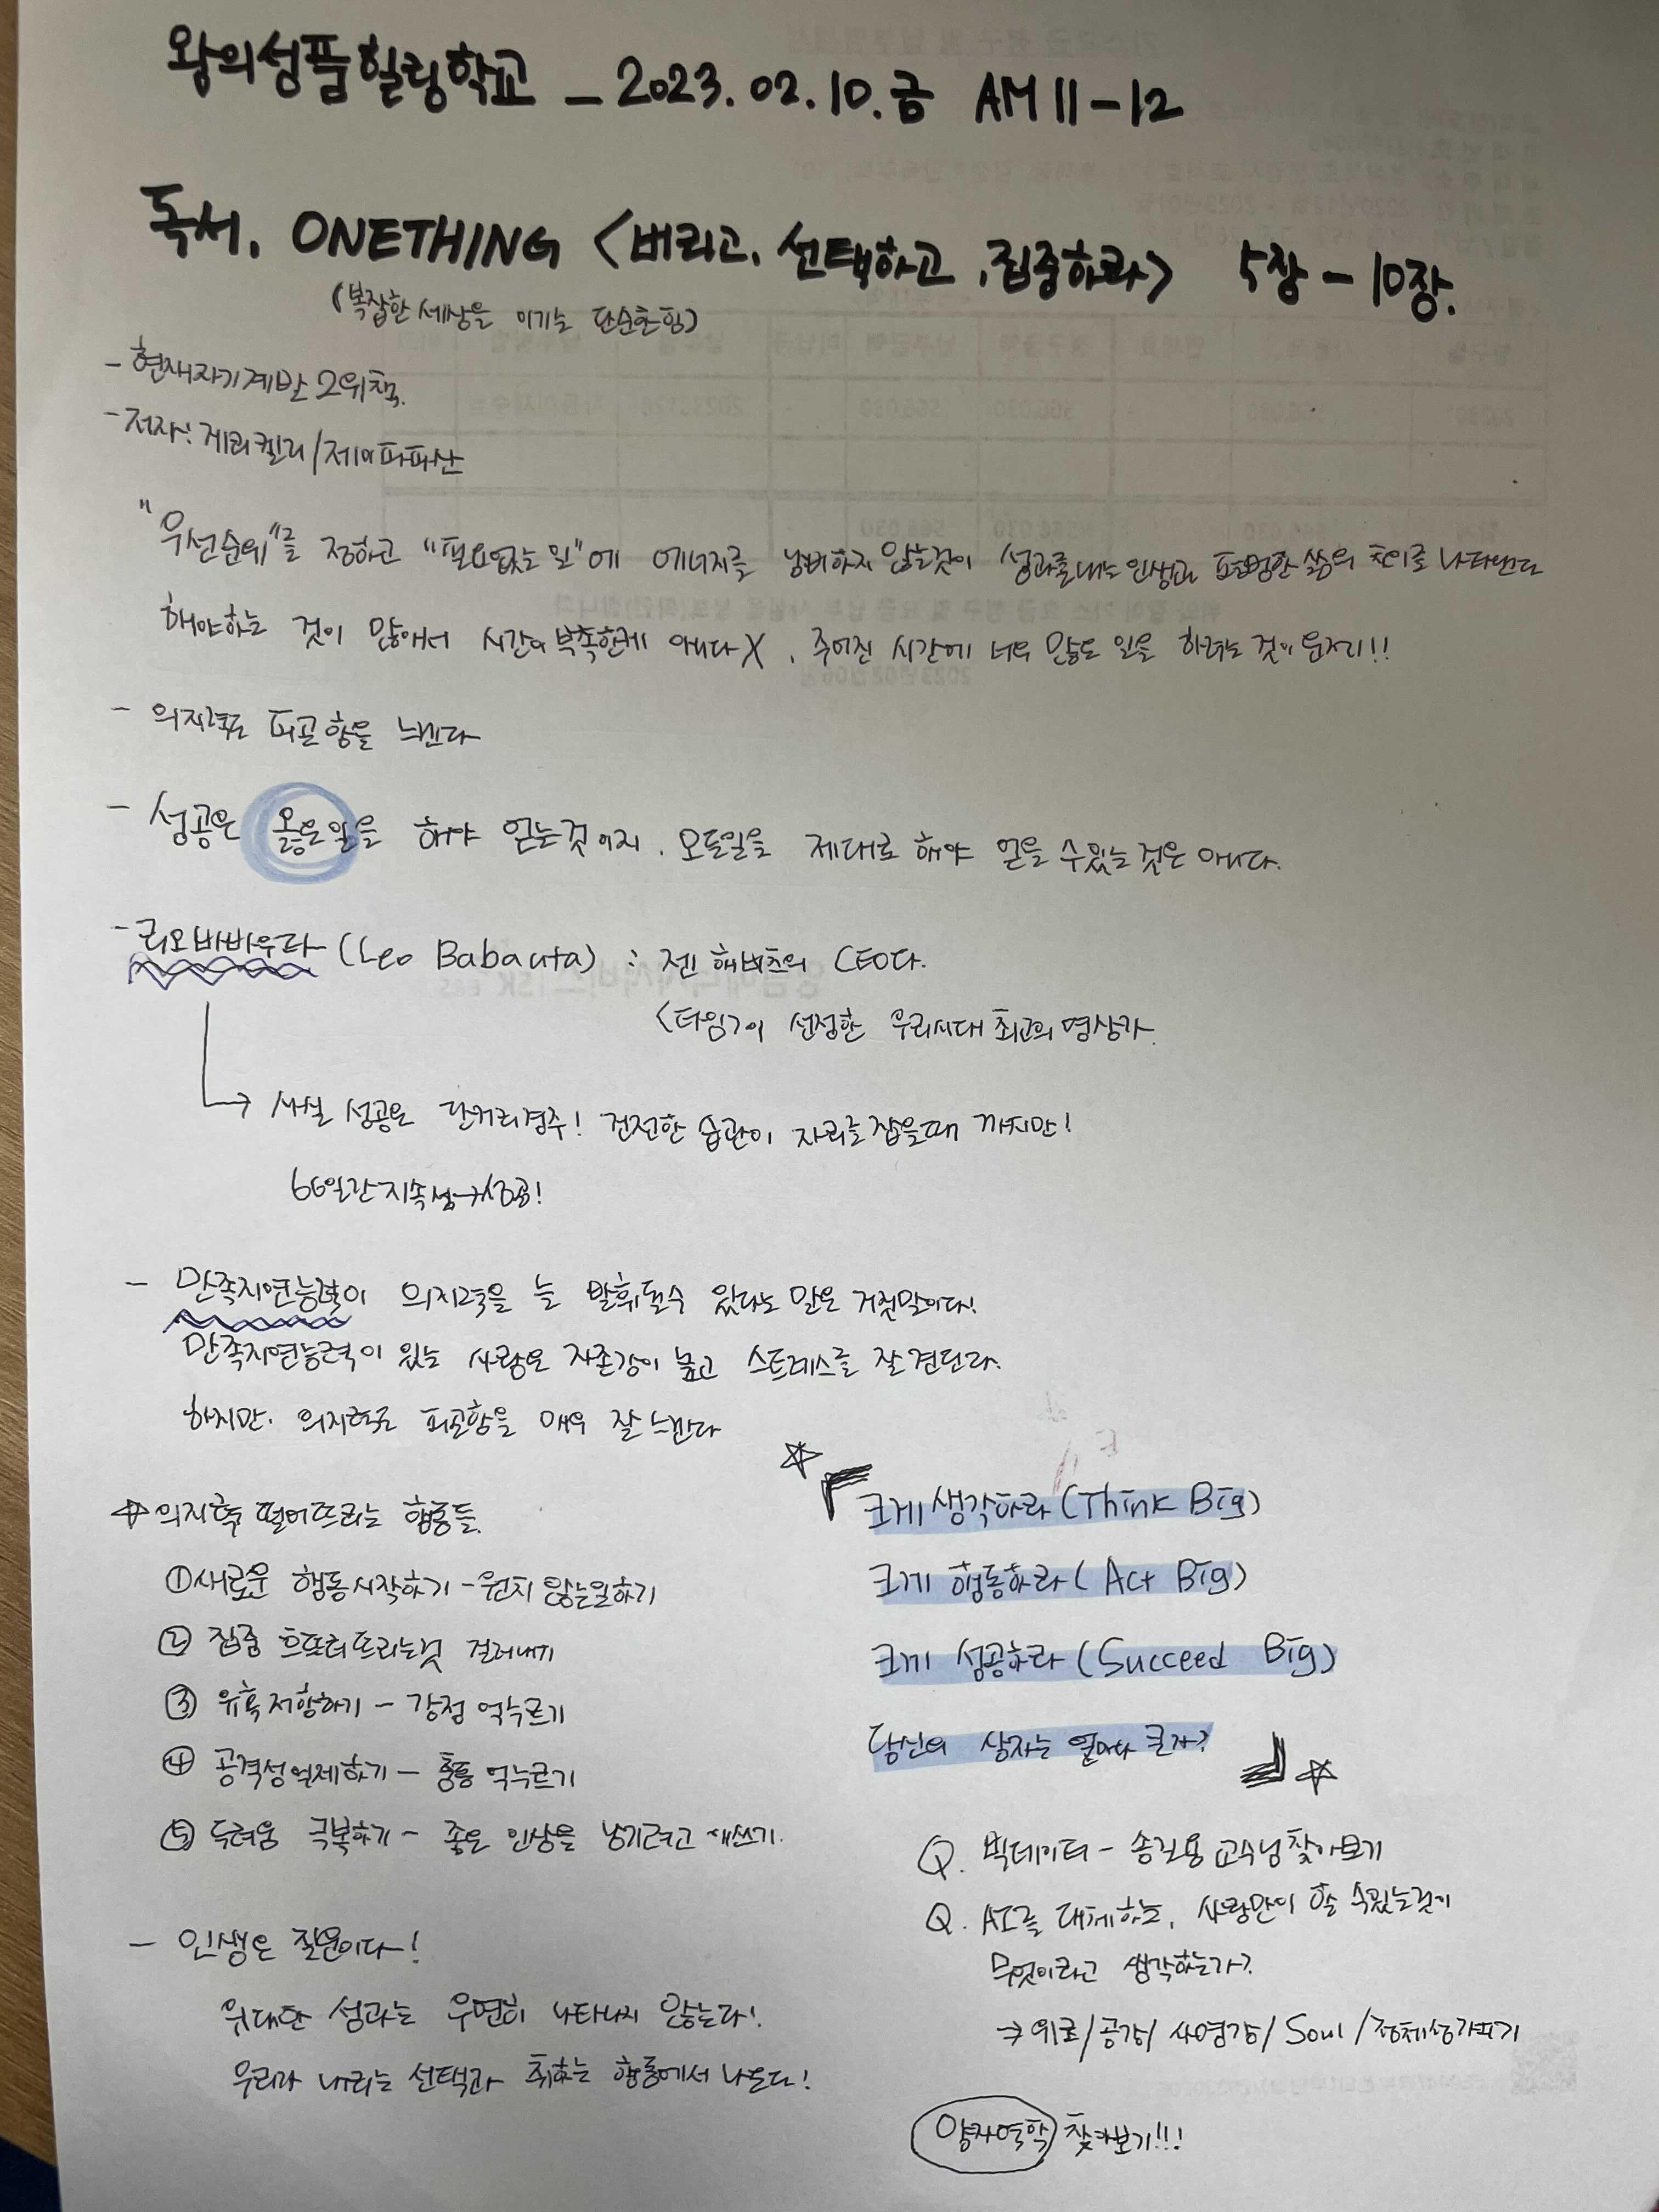 왕의성품힐링학교 - 2023.02.10.금 AM 11-12
독서. ONETHING <버리고, 선택하고, 집중하라> 5장 - 10장.
(복잡한 세상을 이기는 단순한 힘)
- 현재자기계발 2위책.
- 저자: 게리켈러/제이파파산
"우선순위"를 정하고 "필요없는 일"에 에너지를 낭비하지 않는것이 성과를내는 인생과 평범한 삶의 차이를 나타낸다
해야하는 것이 많아서 시간이 부족한게 아니다X, 주어진 시간에 너무 많은 일을 하려는 것이 문제!!
- 의지력도 피곤함을 느낀다
- 성공은 옳은일을 해야 얻는것이지, 모든일을 제대로 해야 얻을 수있는것은 아니다.
- 리오바바우타 (Leo Babauta) : 젠 해비츠의 CEO다.
<타임>이 선정한 우리시대 최고의 명상가.
→ 사실 성공은 단거리경주! 건전한 습관이 자리를 잡을때 까지만!
66일간 지속성→성공!
- 만족지연능력이 의지력을 늘 발휘될수 있다는 말은 거짓말이다!
만족지연능력이 있는 사람은 자존감이 높고 스트레스를 잘 견딘다.
하지만. 의지력도 피곤함을 매우 잘 느낀다
☆ 의지력 떨어뜨리는 행동들.
① 새로운 행동시작하기 - 원치 않는일하기
② 집중 흐트러뜨리는것 걸러내기
③ 유혹저항하기 - 감정 억누르기
④ 공격성억제하기 - 충동 억누르기
⑤ 두려움 극복하기 - 좋은 인상을 남기려고 애쓰기.
- 인생은 질문이다!
위대한 성과는 우연히 나타나지 않는다!
우리가 내리는 선택과 취하는 행동에서 나온다!
☆ 크게 생각하라 (Think Big)
크게 행동하라 (Act Big)
크게 성공하라 (Succeed Big)
당신의 상자는 얼마나 큰가? ☆
Q. 빅데이터 - 송길용 교수님 찾아보기
Q. AI를 대체하는, 사람만이 할 수있는것이
무엇이라고 생각하는가?
→ 위로/공감/사명감/Soul/정체성가지기
양자역학 찾아보기!!!